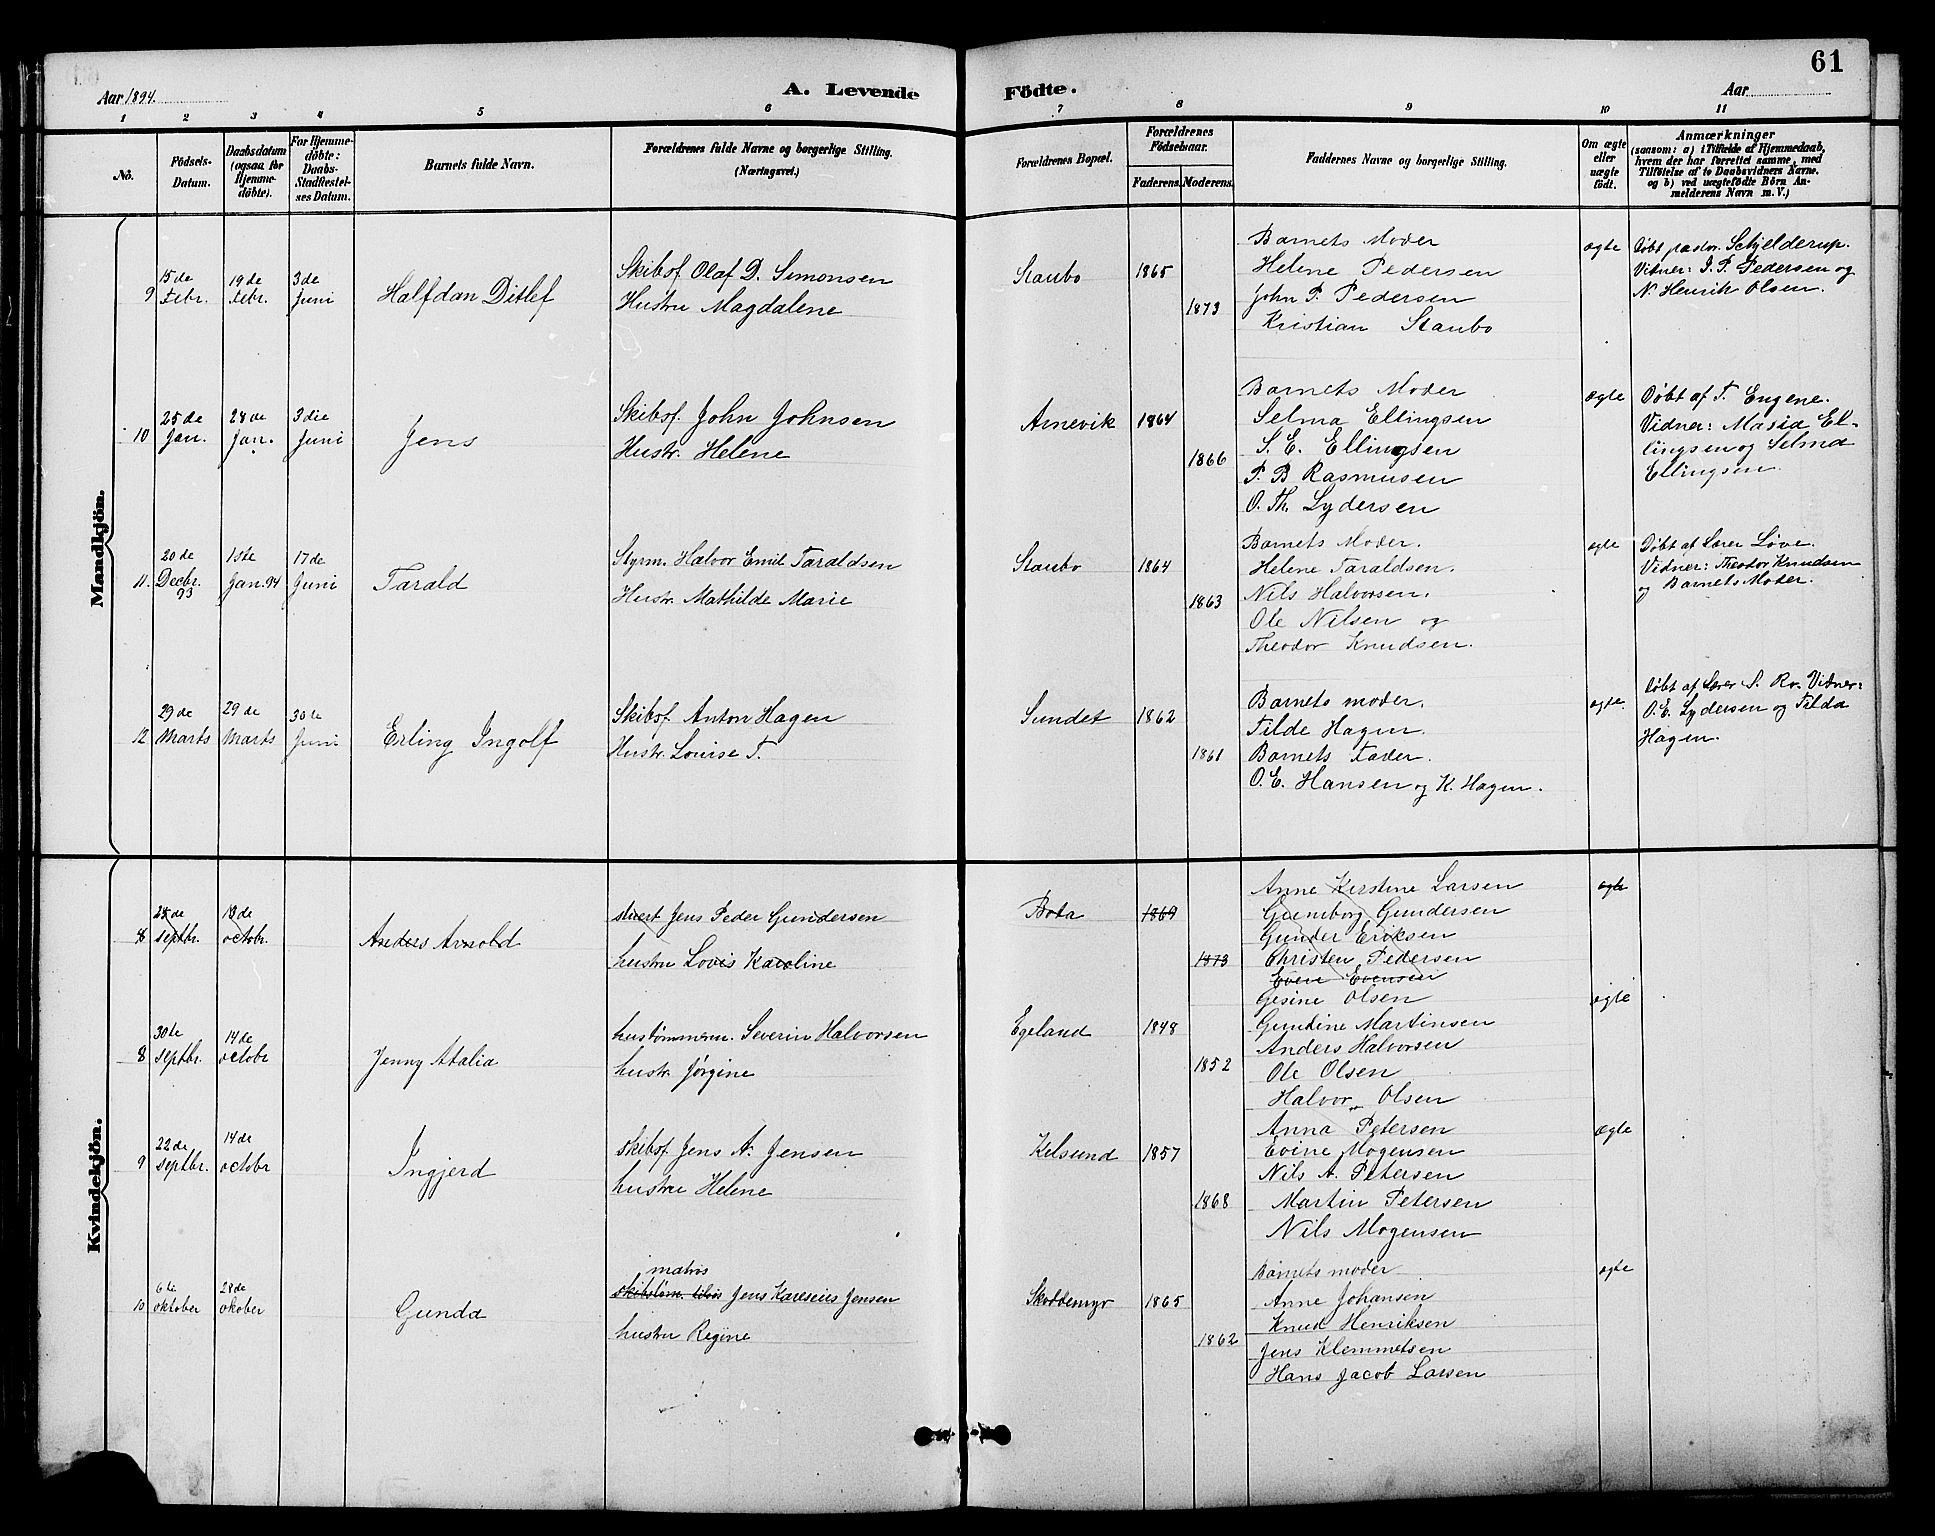 61
Aar 1894.
A. Levende Födte.
Aar
1 2 3 4 5 6 7 8 9 10 11
No.
Födsels-Datum.
Daabsdatum (ogsaa for Hjemmedöbte).
For Hjemmedöbte: Daabs-Stadfæstelses Datum.
Barnets fulde Navn.
Forældrenes fulde Navne og borgerlige Stilling. (Næringsvei.)
Forældrenes Bopæl.
Forældrenes Fødselsaar.
Faderens. Moderens.
Faddernes Navne og borgerlige Stilling.
Om ægte eller uægte født.
Anmærkninger
(saasom: a) i Tilfælde af Hjemmedaab, hvem der har forrettet samme, med Tilföielse af to Daabsvidners Navne. og b) ved uægtefödte Börn Anmelderens Navn m. V.)
Mandkjön.
9
15de Febr.
19de Febr.
3de Juni
Halfdan Ditlef
Skibsf. Olaf D. Simonsen
Hustru Magdalene
Staubo
1865
1873
Barnets Moder
Helene Pedersen
John P. Pedersen
Kristian Staubo
ægte
Døbt pastor. Schjelderup.
Vidner: J. P. Pedersen og
N. Henrik Olsen.
10
25de Jan.
28de Jan.
3die Juni
Jens
Skibsf. John Johnsen
Hustr. Helene
Arnevik
1864
1866
Barnets Moder
Selma Ellingsen
S. E. Ellingsen
P. B Rasmusen
O. Th. Lydersen
ægte
Døbt af T. Eugene.
Vidner: Masia El-
lingsen og Selma
Ellingsen.
11.
20de Decbr. 93
1ste Jan. 94
17de Juni
Tarald
Styrm. Halvor Emil Taraldsen
Hustr. Mathilde Marie
Staubo
1864
1863
Barnets Moder.
Helene Taraldsen.
Nils Halvorsen.
Ole Nilsen og
Theodor Knudsen.
ægte
Døbt af Lærer Løve.
Vidner: Theodor Knudsen
og Barnets Moder.
12
29de Marts
29de Marts
30te Juni
Erling Ingolf
Skibsf. Anton Hagen
Hustr. Louise T.
Sundet
1862
1861
Barnets moder.
Tilde Hagen.
Barnets Fader.
O. E. Hansen og K. Hagen.
ægte
Døbt af Lærer S. Ro. Vidner:
O. E. Lydersen og Tilda
Hagen.
Kvindekjön.
8
25de septbr.
13de octobr.
Anders Arnold
Jens Peder Gundersen
hustru Lovis Karoline
Bota
1869
1873
Anne Kirstine Larsen
Gunneborg Gundersen
Gunder Eriksen
Christen Pedersen
Even Evensen
ægte
8
30te septbr.
14de octobr
Jenny Atalia
hustømmerm. Severin Halvorsen
hustr. Jørgine
Egeland
1848
1852
Gesine Olsen
Gundine Martinsen
Anders Halvorsen
Ole Olsen
Halvor Olsen
ægte
9
22de septbr.
14de octobr
Ingjerd
skibsf. Jens A. Jensen
hustru Helene
Kilsund
1857
1868
Anna Petersen
Evine Mogensen
Nils A. Petersen
Martin Petersen
Nils Mogensen
ægte
10
6te oktober
28de okober
Gunda
matros
Jens Kareseies Jensen
hustru Regine
Skoddemyr
1865
1862
Barnets moder
Anne Johansen
Knud Henriksen
Jens Klemmetsen
Hans Jacob Larsen
ægte